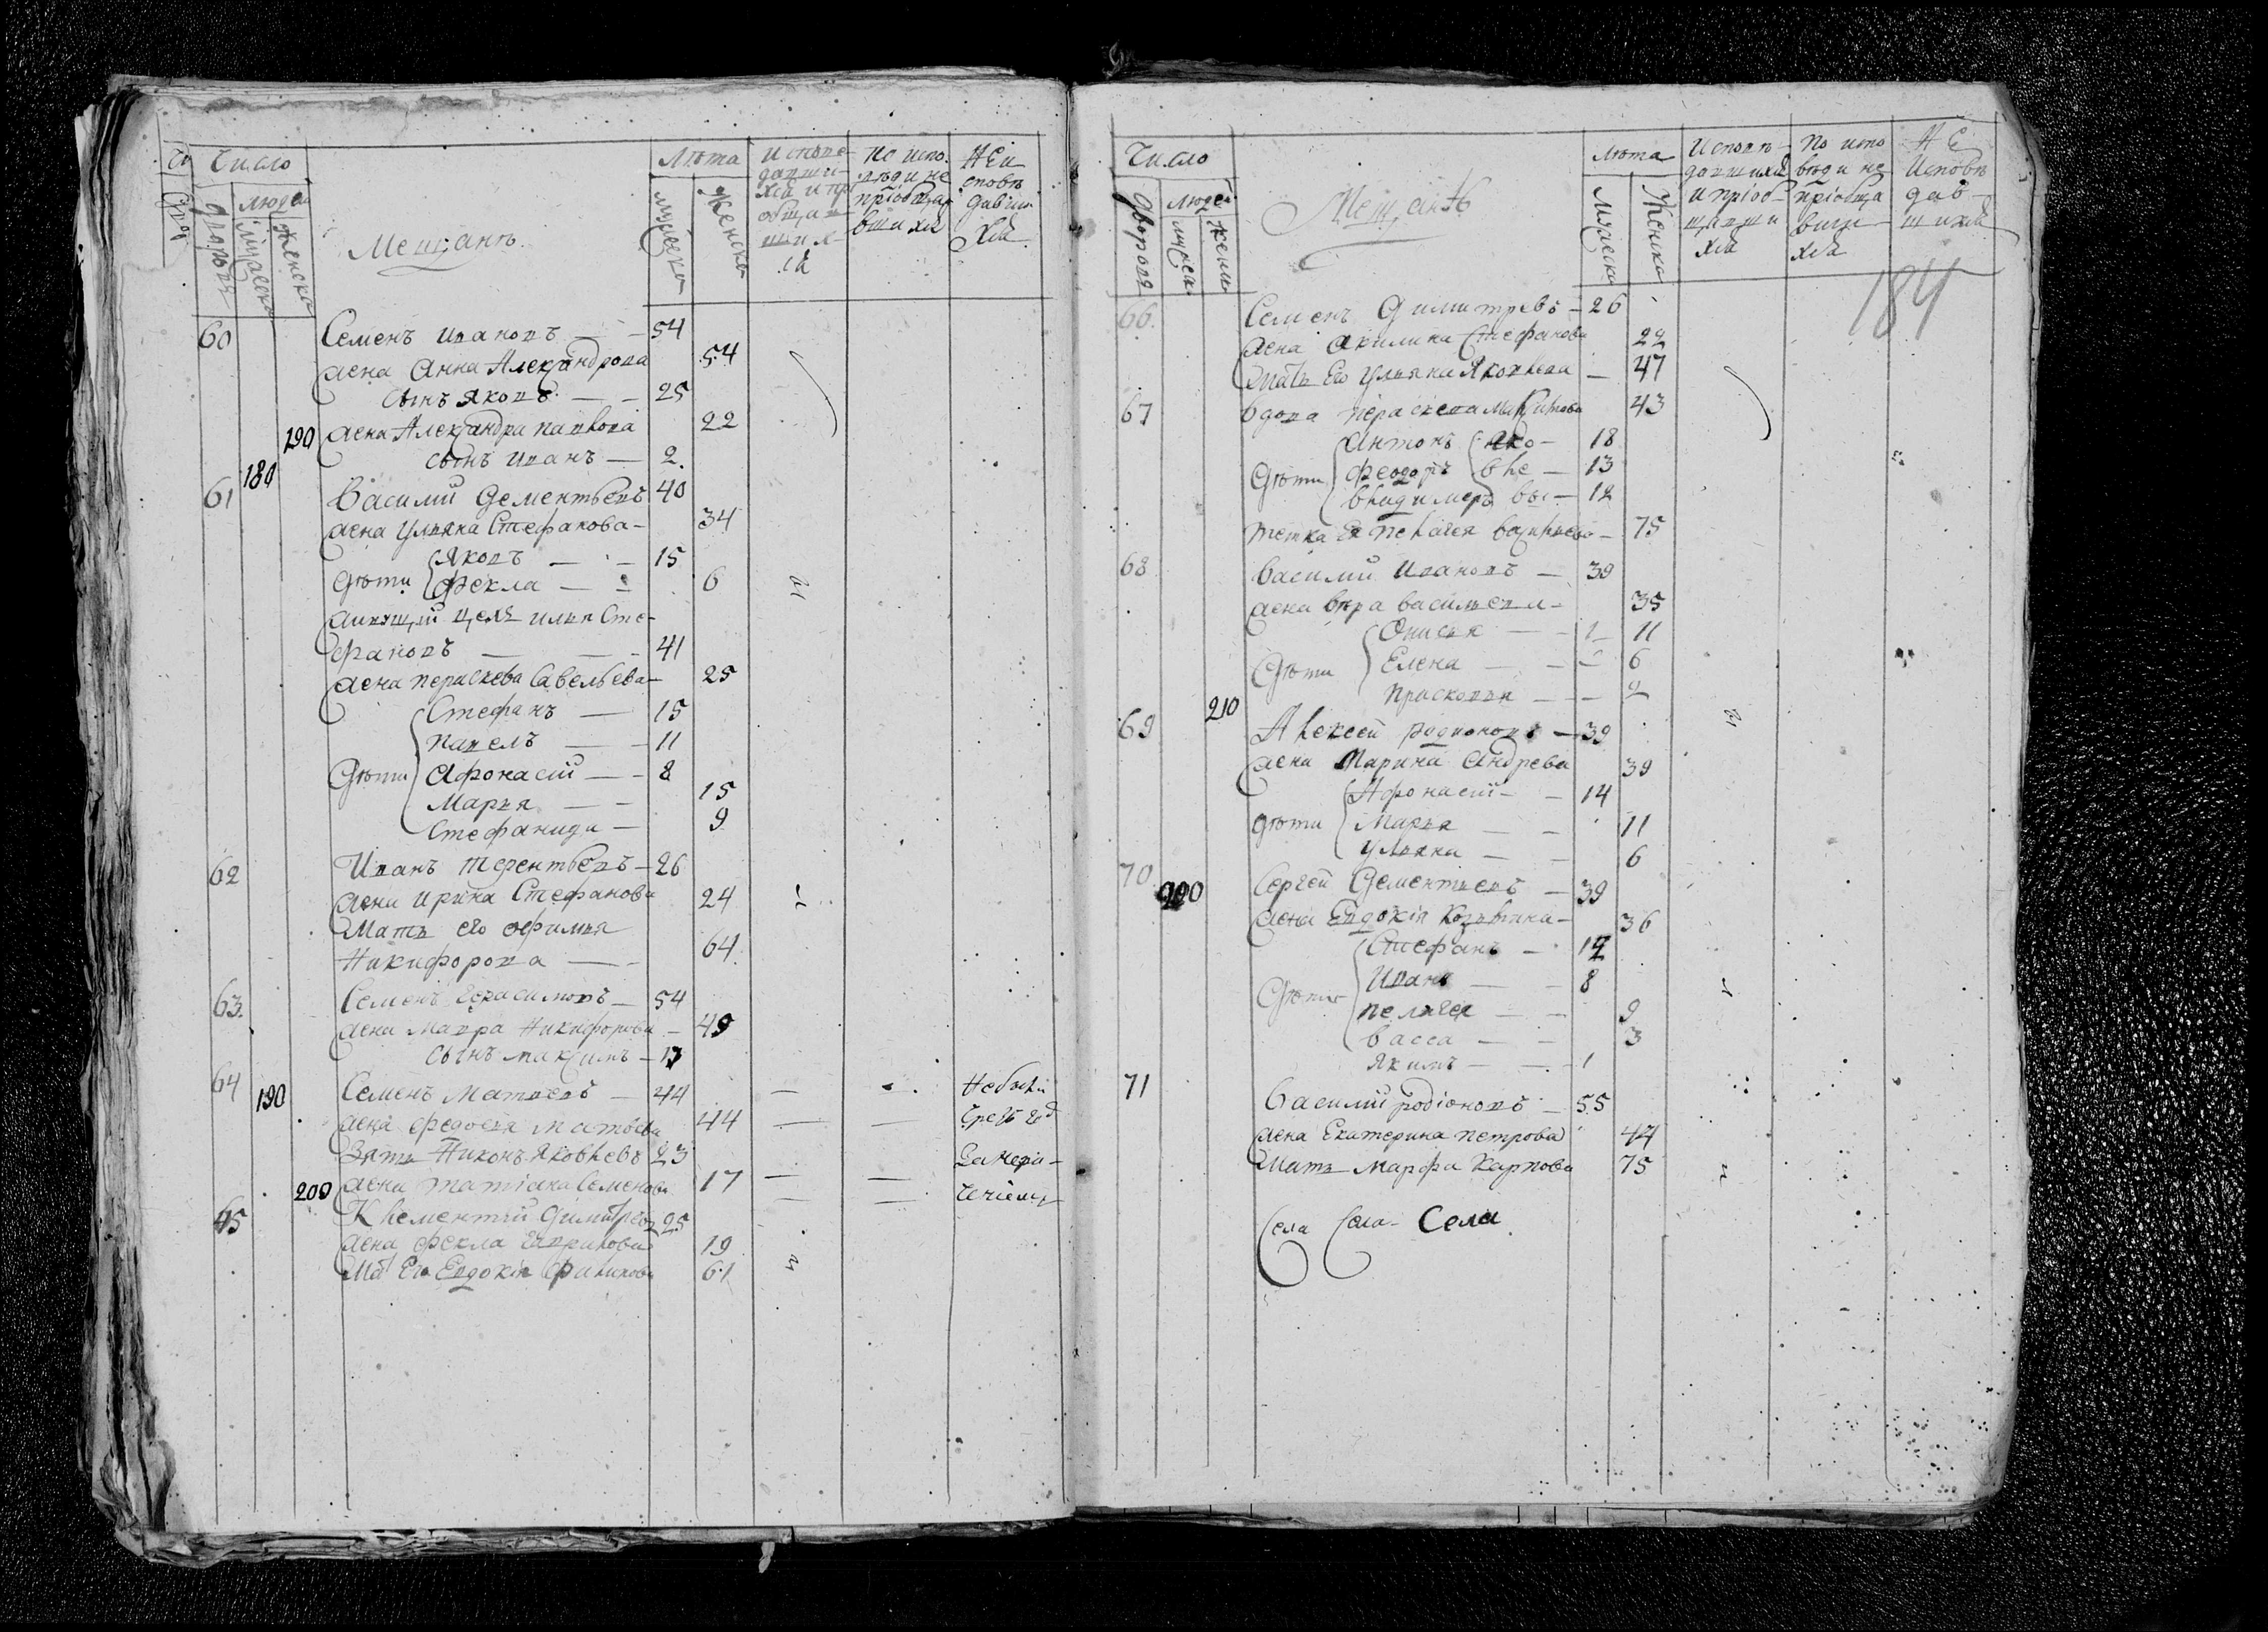 Число
людей
дворовъ
мужеска
женска
Мещанъ.
Лѣта
мужеска
женска
Исповѣ-
давши-
хся и прі
общав-
шихся
По испо-
вѣди не
пріобщав
шихся
Неи
сповѣ
давши
хся
60 Семенъ Ивановъ — 54
жена Анна Александрова 54
сынъ Яковъ — 25
190 жена Александра Павлова 22
сынъ Иванъ — 2.
180
61 Василий Дементьевъ 40
жена Ульяна Стефанова — 34
Дѣти Яковъ — 15
Фекла — 6
Сте-
фановъ — 41
жена Параскева Савельева — 25
Стефанъ — 15
Павелъ — 11
Дѣти Афонасій — 8
Марья — 15
Стефанида — 9
62 Иванъ Терентьевъ — 26
жена Ирина Стефанова 24
Мать его Офимья
Никифорова — 64
63 Семенъ Герасимовъ — 54
жена Мавра Никифорова — 49
сынъ Максимъ — 13
64 190 Семенъ Матвеевъ — 44 — — Небыли
жена Федосья Матвева 44 — —
Зять Никонъ Яковлевъ 23
200 жена Татіана Семенова 17 — —
65 Клементий Димитревъ 25
жена Фекла Гаврилова 19
Мат Его Евдокія Филипова 61
Число
людей
дворовъ
мужеск.
женск
Мещанъ
Лѣта
мужеска
женска
Исповѣ-
давшихся
и пріоб-
щавши
хся
По испо
вѣди не
пріобща
вши
хся
Не
Исповѣ
дав-
шихся
184
66. Семенъ Димитревъ — 26
жена Акилина Стефанова 22
Мать Его Ульяна Яковлева — 47
67 Вдова Параскева Максимова 43
Антонъ Яко — 18
Дѣти Феодоръ вле — 13
Владимеръ вы — 12
Тетка Ея Пелагея Васильева — 75
68 Василий Ивановъ — 39
жена Вѣра Васильева — 35
Онисья — 11
Дѣти Елена — 6
Прасковья — 2
210
69 Алексей Родионовъ — 39
жена Марина Андрева 39
Афонасій — 14
Дѣти Марья — 11
Ульяна — 6
70 200 Сергей Дементьевъ — 39
жена Евдокія Козьмина — 36
Стефанъ — 12
Иванъ — 8
Дѣти Пелагея — 9
Васса — 3
Якимъ — 1
71 Василий Родіоновъ — 55
жена Екатерина Петрова 44
Мать Марфа Карпова 75
Села Села Села